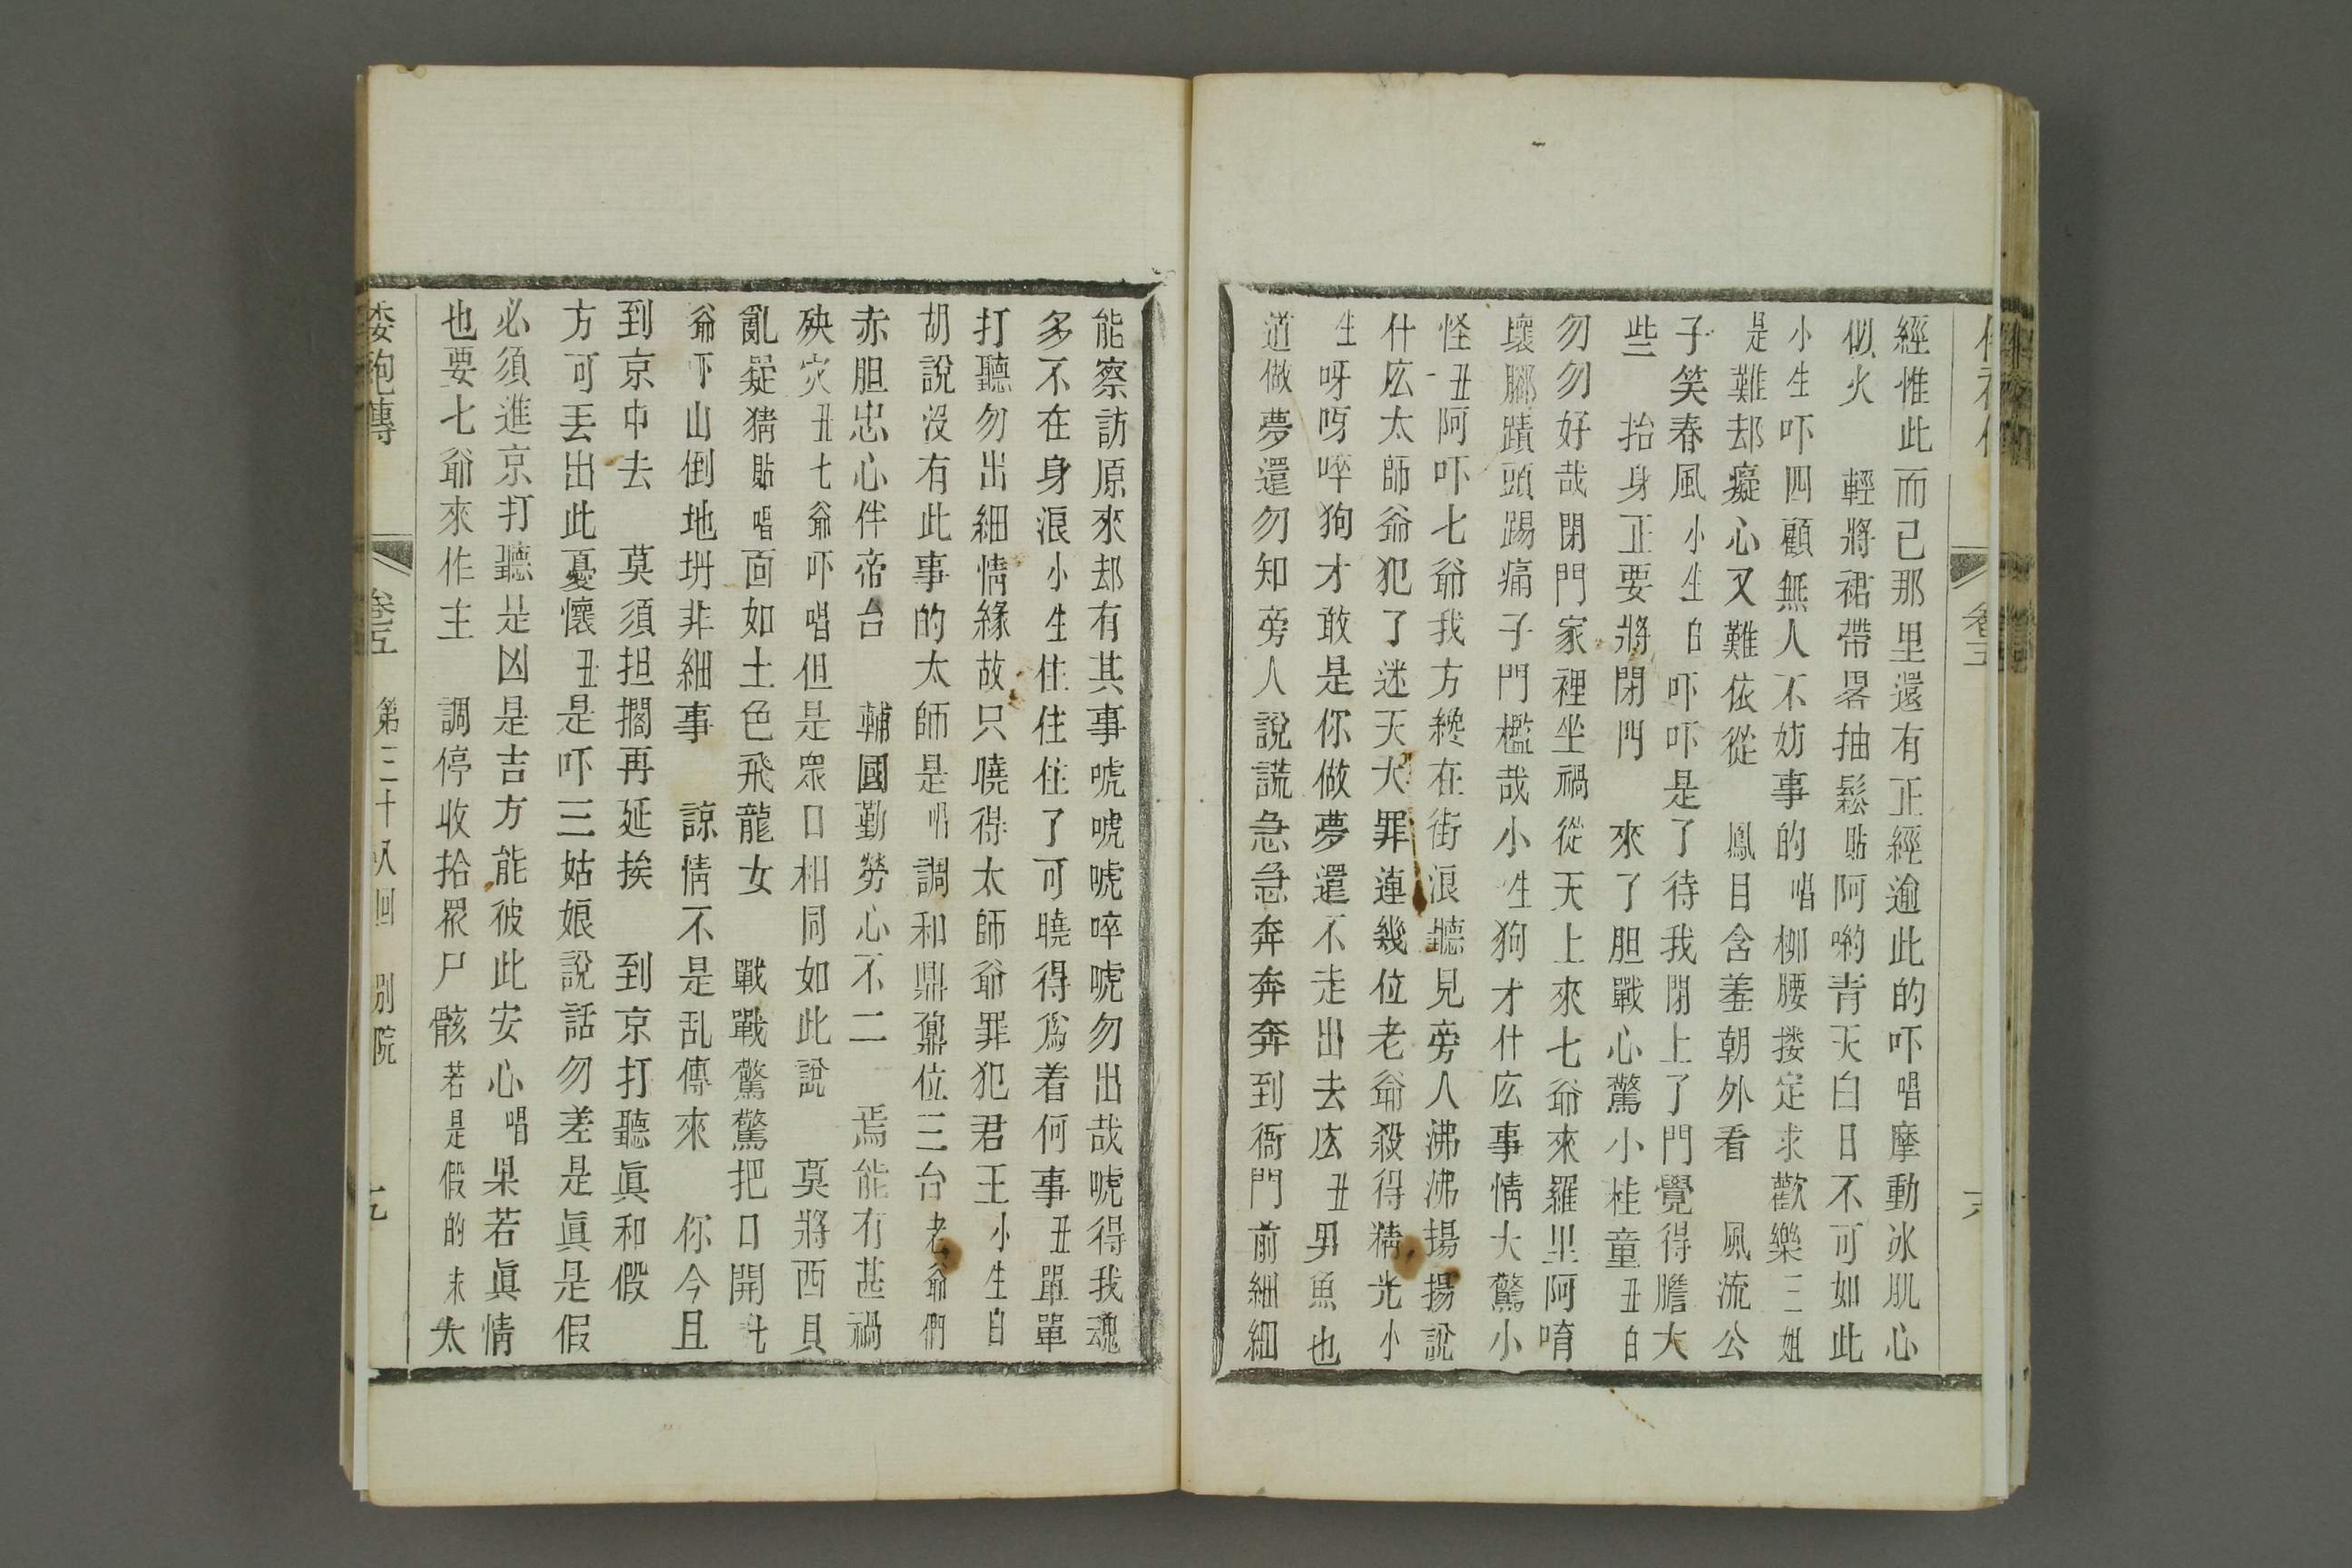 經惟此而已那里還有正經逾此的吓唱摩動冰肌心
似火 輕將裙帶畧抽鬆貼阿喲青天白日不可如此
小生吓四顧無人不妨事的唱柳腰摟定求歡樂三姐
是難却癡心又難依從 鳳目含羞朝外看 風流公
子笑春風小生白吓吓是了待我閉上了門覺得膽大
些 抬身正要將閉門 來了胆戰心驚小桂童丑白
勿勿好哉閉門家裡坐禍從天上來七爺來羅里阿唷
壞腳蹟頭踢痛子門檻哉小生狗才什庅事情大驚小
怪丑阿吓七爺我方纔在街浪聽見旁人沸沸揚揚說
什庅太師爺犯了迷天大罪連幾位老爺殺得精光小
生呀呀啐狗才敢是你做夢還不走出去庅丑男魚也
道做夢還勿知旁人說謊急急奔奔奔到衙門前細細
能察訪原來却有其事唬唬唬啐唬勿出哉唬得我魂
多不在身浪小生住住住了可曉得為着何事丑單單
打聽勿出細情緣故只曉得太師爺罪犯君王小生白
胡說沒有此事的太師是唱調和鼎鼐位三台老爺們
赤胆忠心伴帝台 輔國勤勞心不二 焉能有甚禍
殃灾丑七爺吓唱但是眾口相同如此說 莫將西貝
亂疑猜貼唱面如土色飛龍女 戰戰驚驚把口開七
爺下山倒地坍非細事 諒情不是乱傳來 你今且
到京中去 莫須担擱再延挨 到京打聽眞和假
方可丟出此憂懷丑是吓三姑娘說話勿差是眞是假
必須進京打聽是凶是吉方能彼此安心唱果若眞情
也要七爺來作主 調停收拾眾尸骸若是假的末太
倭袍傳 卷五 第三十八回 別院